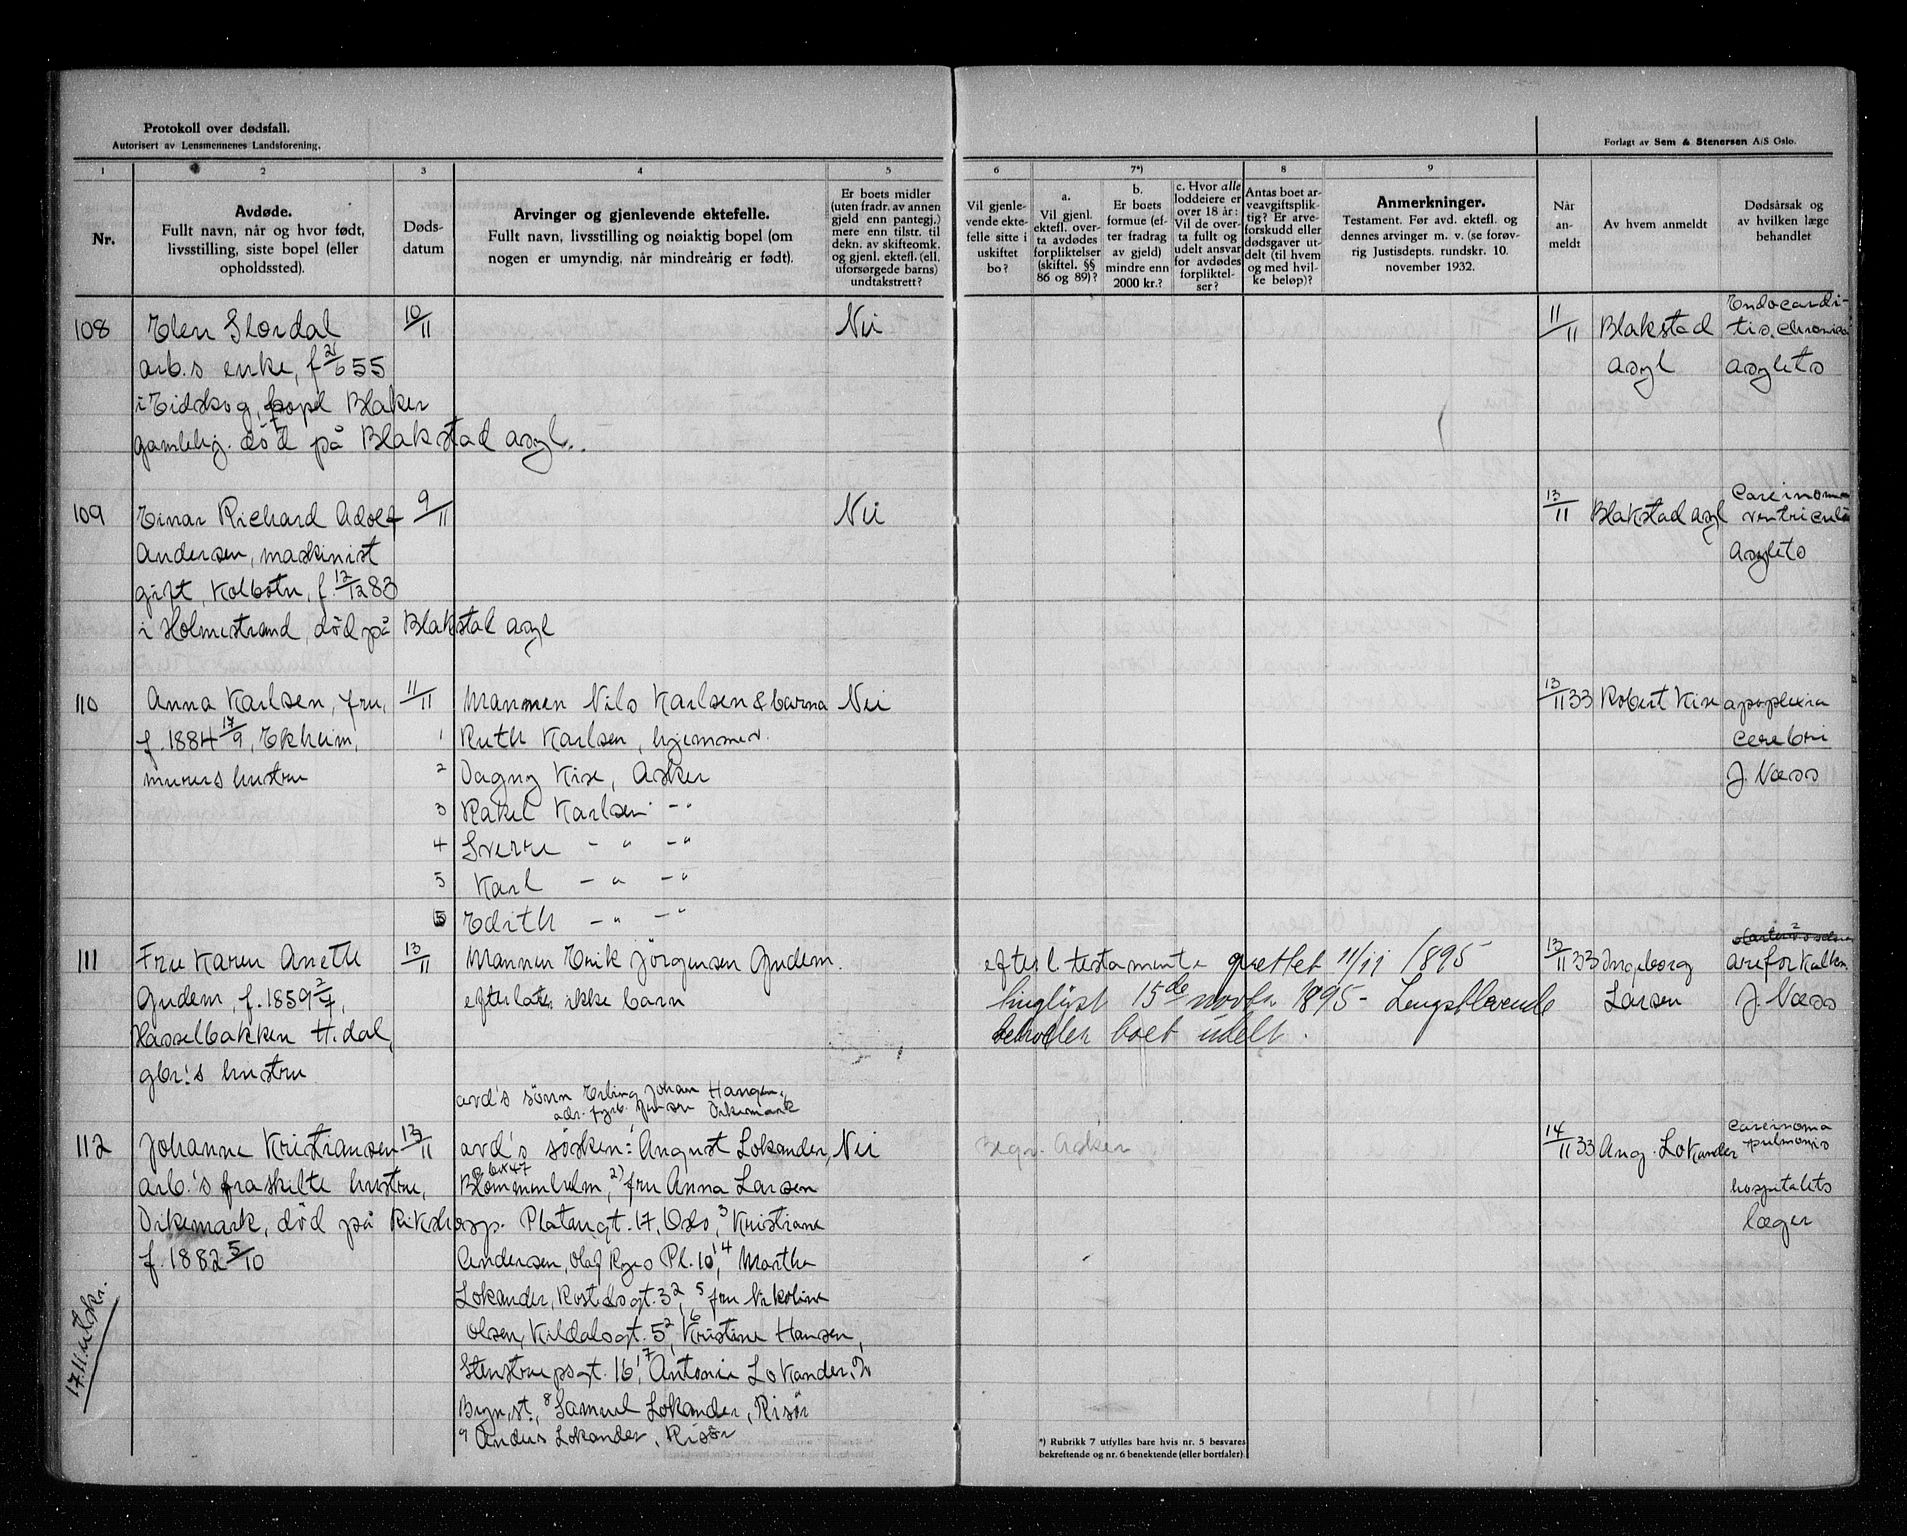 Protokoll over dødsfall.
Autorisert av Lensmennenes Landsforening.
Forlagt av Sem & Stenersen A/S Oslo.
1 2 3 4 5 6 7*) 8 9
Nr.
Avdøde.
Fullt navn, når og hvor født,
livsstilling, siste bopel (eller
opholdssted).
Døds-
datum
Arvinger og gjenlevende ektefelle.
Fullt navn, livsstilling og nøiaktig bopel (om
nogen er umyndig, når mindreårig er født).
Er boets midler
(uten fradr. av annen
gjeld enn pantegj.)
mere enn tilstr. til
dekn. av skifteomk.
og gjenl. ektef. (ell.
uforsørgede barns)
undtakstrett?
Vil gjenle-
vende ekte-
felle sitte i
uskiftet
bo?
a.
Vil gjenl.
ektefl. over-
ta avdødes
forpliktelser
(skiftel. §§
86 og 89)?
b.
Er boets
formue (ef-
ter fradrag
av gjeld)
mindre enn
2000 kr.?
c. Hvor alle
loddeiere er
over 18 år:
Vil de over-
ta fullt og
udelt ansvar
for avdødes
forpliktel-
ser?
Antas boet ar-
veavgiftsplik-
tig? Er arve-
forskudd eller
dødsgaver ut-
delt (til hvem
og med hvil-
ke beløp)?
Anmerkninger.
Testament. Før avd. ektefl. og
dennes arvinger m. v. (se forøv-
rig Justisdepts. rundskr. 10.
november 1932.
Når
an-
meldt
Av hvem anmeldt
Dødsårsak og
av hvilken læge
behandlet
108 Elen Stordal 10/11 Nei 11/11 Blakstad asyl Endocardi-
tis chronica
asylets
arb.s enke, f 21/6 55
i Eidskog, bopel Blaker
gamlehj. død på Blakstad asyl.
109 Einar Richard Adolf 9/11 Nei 13/11 Blakstad asyl Carcinoma
ventriculi
Asylets
Andersen, maskinist
gift, Kolbotn, f. 12/12 83
i Holmestrand, død på Blakstad asyl
110 Anna Karlsen, fru, 11/11 Mannen Nils Karlsen & barna Nei 13/11 33 Robert Kise apoplexia
cerebri
J. Næss
f. 1884 17/9, Ekheim,
murers hustru
1 Ruth Karlsen, hjemmev.
2 Dagny Kise, Asker
3 Rakel Karlsen -"
4 Sverre - " -"
5 Karl - " -"
6 Edith - " -"
111 Fru Karen Anette 13/11 Mannen Erik Jörgensen Gudem. efterl. testamente oprettet 11/11 1895 13/11 33 Ingeborg
Larsen
areforkalkn.
J. Næss
Gudem, f. 1859 2/7, efterlater ikke barn tinglyst 15de novbr 1895 - Lengstlevende
Hasselbakken H.dal, beholder boet udelt.
gbr.s hustru
avd's sönn Erling Johan Hangen,
adr. Dikemark
112 Johanne Kristiansen 13/11 avd's søsken: August Lokander, Nei Begr. Asker 14/11 33 Aug. Lokander Carcinoma
pulmonis
hospitalets
læger
arb.'s fraskilte hustru, Box 47
Blommenholm, 2) fru Anna Larsen
Dikemark, død på Rikshosp. Platougt. 17, Oslo, 3 Kristiane
f. 1882 5/10 Andersen, Olaf Ryes Pl. 10, 4 Martha
Lokander, Rostedsgt. 3 2, 5 fru Nikoline
Olsen, Kildalsgt. 5 2, 6 Kristine Hansen,
Stenstrupsgt. 16, 7 Antonie Lokander,
Bryn st., 8 Samuel Lokander, Risör
9 Anders Lokander, Risör
17.11. utski.
*) Rubrikk 7 utfylles bare hvis nr. 5 besvares
bekreftende og nr. 6 benektende (eller bortfaler)